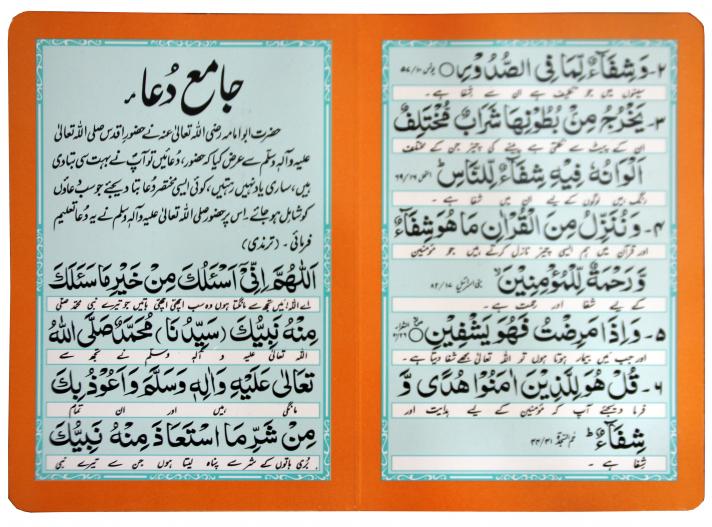 جامع دُعاء
حضرت ابو امامہ رضی اللہ تعالیٰ عنہ نے حضورِ اقدس صلی اللہ تعالیٰ
علیہ وآلہٖ وسلم سے عرض کیا کہ حضور، دُعائیں تو آپ نے بہت سی بتا دی
ہیں، ساری یاد نہیں رہتیں، کوئی ایسی مختصر دُعا بتا دیجئے جو سب دعاؤں
کو شامل ہو جائے۔ اس پر حضور صلی اللہ تعالیٰ علیہ وآلہٖ وسلم نے یہ دُعا تعلیم
فرمائی۔ (ترمذی)
اَللّٰهُمَّ اِنِّیْ اَسْئَلُكَ مِنْ خَيْرِ مَا سَئَلَكَ
اے اللہ! میں تجھ سے مانگتا ہوں وہ سب اچھی اچھی باتیں جو تیرے نبی محمد صلی
مِنْهُ نَبِيُّكَ (سَيِّدُنَا) مُحَمَّدٌ صَلَّی اللّٰهُ
اللہ تعالیٰ علیہ و آلہٖ وسلم نے تجھ سے
تَعَالٰی عَلَيْهِ وَاٰلِهٖ وَسَلَّمَ وَاَعُوْذُ بِكَ
مانگی ہیں اور ان تمام
مِنْ شَرِّ مَا اسْتَعَاذَ مِنْهُ نَبِيُّكَ
بُری باتوں کے شر سے پناہ لیتا ہوں جن سے تیرے نبی
۲۔ وَشِفَآءٌ لِّمَا فِی الصُّدُوْرِ ○ یونس ۵۷/۱۰
سینوں میں جو تکلیف ہے ان سے شِفا ہے۔
۳۔ يَخْرُجُ مِنْۢ بُطُوْنِهَا شَرَابٌ مُّخْتَلِفٌ
ان کے پیٹ سے نکلتی ہے پینے کی چیز جن کے مختلف
اَلْوَانُهٗ فِيْهِ شِفَآءٌ لِّلنَّاسِ ؕ النحل ۶۹/۱۶
رنگ ہیں لوگوں کے لیے ان میں شفا ہے۔
۴۔ وَنُنَزِّلُ مِنَ الْقُرْاٰنِ مَا هُوَ شِفَآءٌ
اور قرآن میں ہم ایسی چیز نازل کرتے ہیں جو مؤمنین
وَّرَحْمَةٌ لِّلْمُؤْمِنِيْنَ ۙ بنی اسرائیل ۸۲/۱۷
کے لیے شفا اور رحمت ہے۔
۵۔ وَاِذَا مَرِضْتُ فَهُوَ يَشْفِيْنِ ○
اور جب میں بیمار ہوتا ہوں تو اللہ تعالیٰ مجھے شفا دیتا ہے۔
۶۔ قُلْ هُوَ لِلَّذِيْنَ اٰمَنُوْا هُدًی وَّ
فرما دیجئے آپ کہ مؤمنین کے لیے ہدایت اور
شِفَآءٌ ؕ حٰم السجدة ۴۴/۴۱
شِفا ہے۔